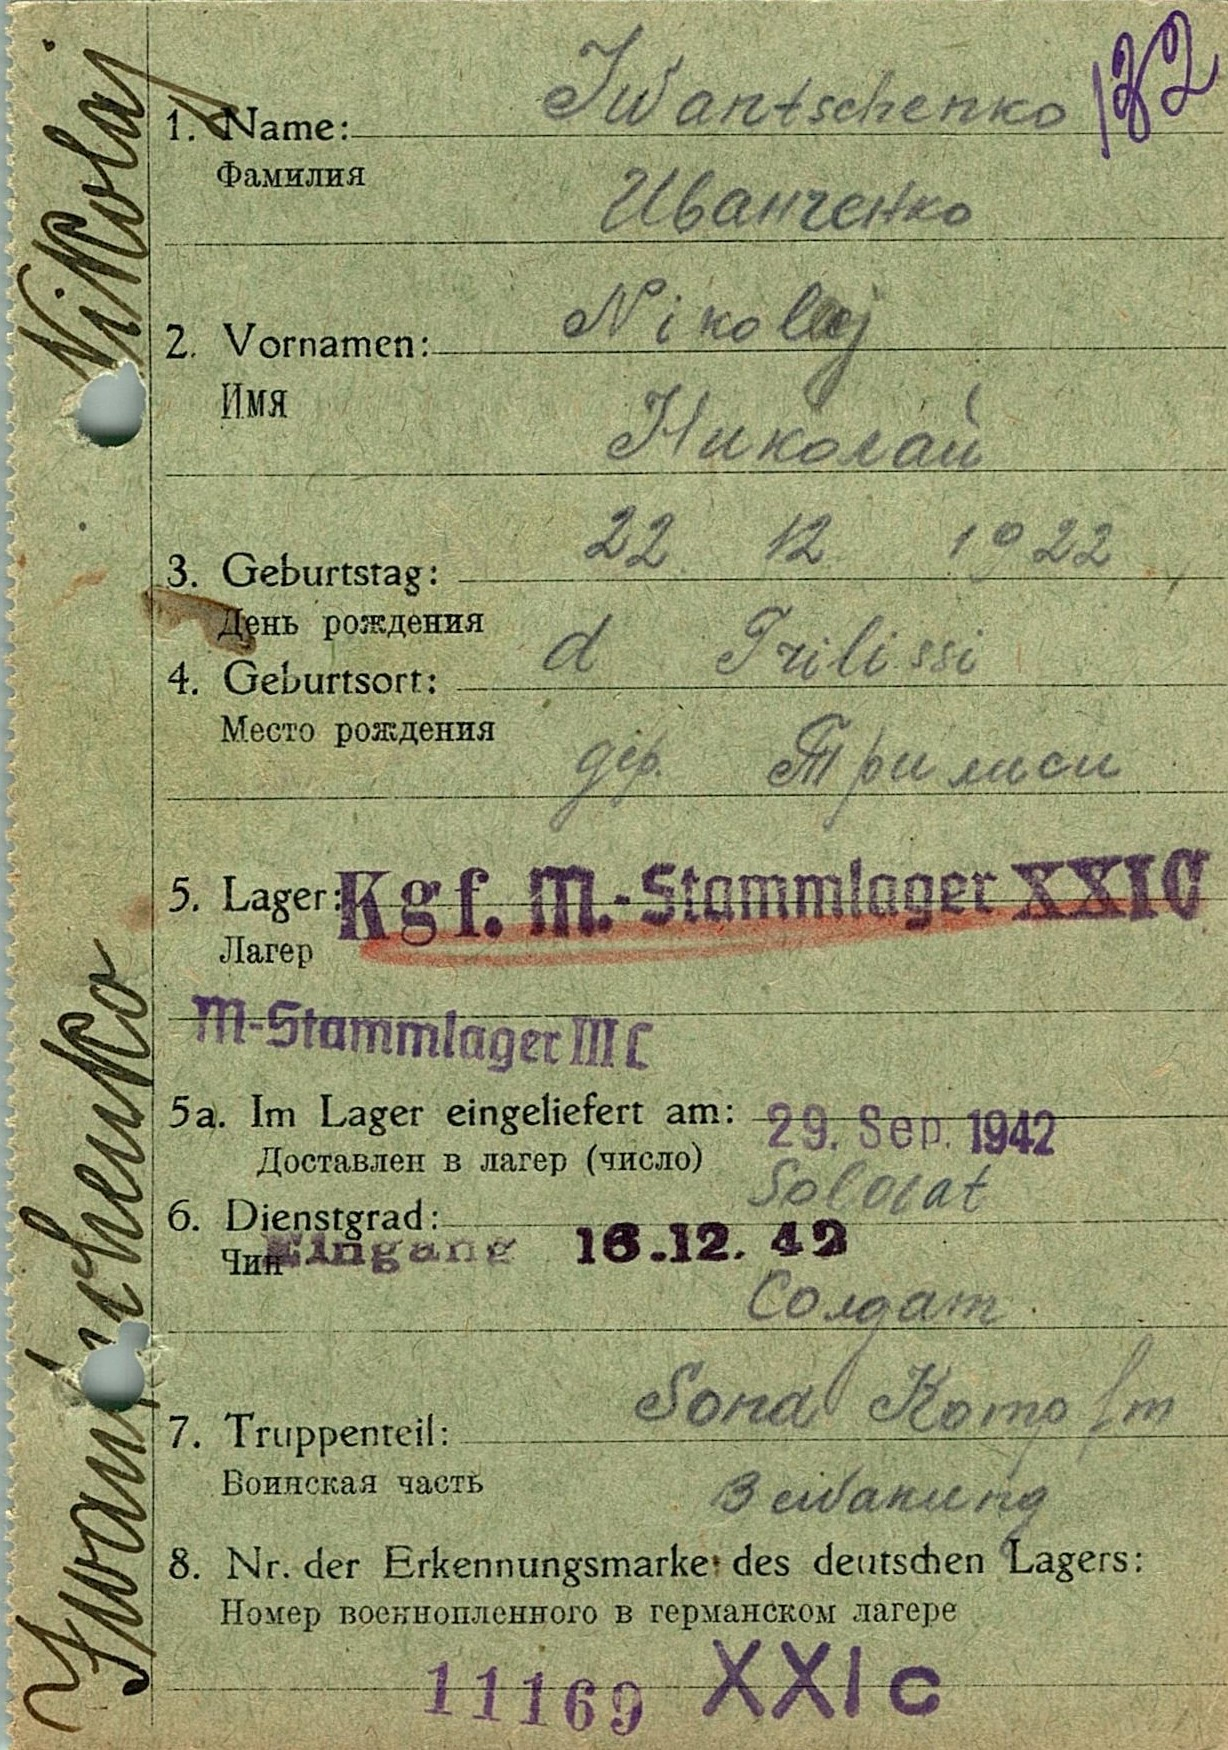 132
Nikolaj
Iwantschenko
1. Name: Iwantschenko
Фамилия
Иванченко
2. Vornamen: Nikolaj
Имя
Николай
22 12 1922
3. Geburtstag:
День рождения
d Trilissi
4. Geburtsort:
Место рождения
дер. Трилиси
5. Lager: Kgf. M.-Stammlager XXIC
Лагер
M-Stammlager III C
5a. Im Lager eingeliefert am: 29. Sep. 1942
Доставлен в лагер (число)
Soldat
6. Dienstgrad:
Чин Eingang 16.12.42
Солдат
7. Truppenteil: Komp
Воинская часть
8. Nr. der Erkennungsmarke des deutschen Lagers:
Номер военнопленного в германском лагере
11169 XXI c